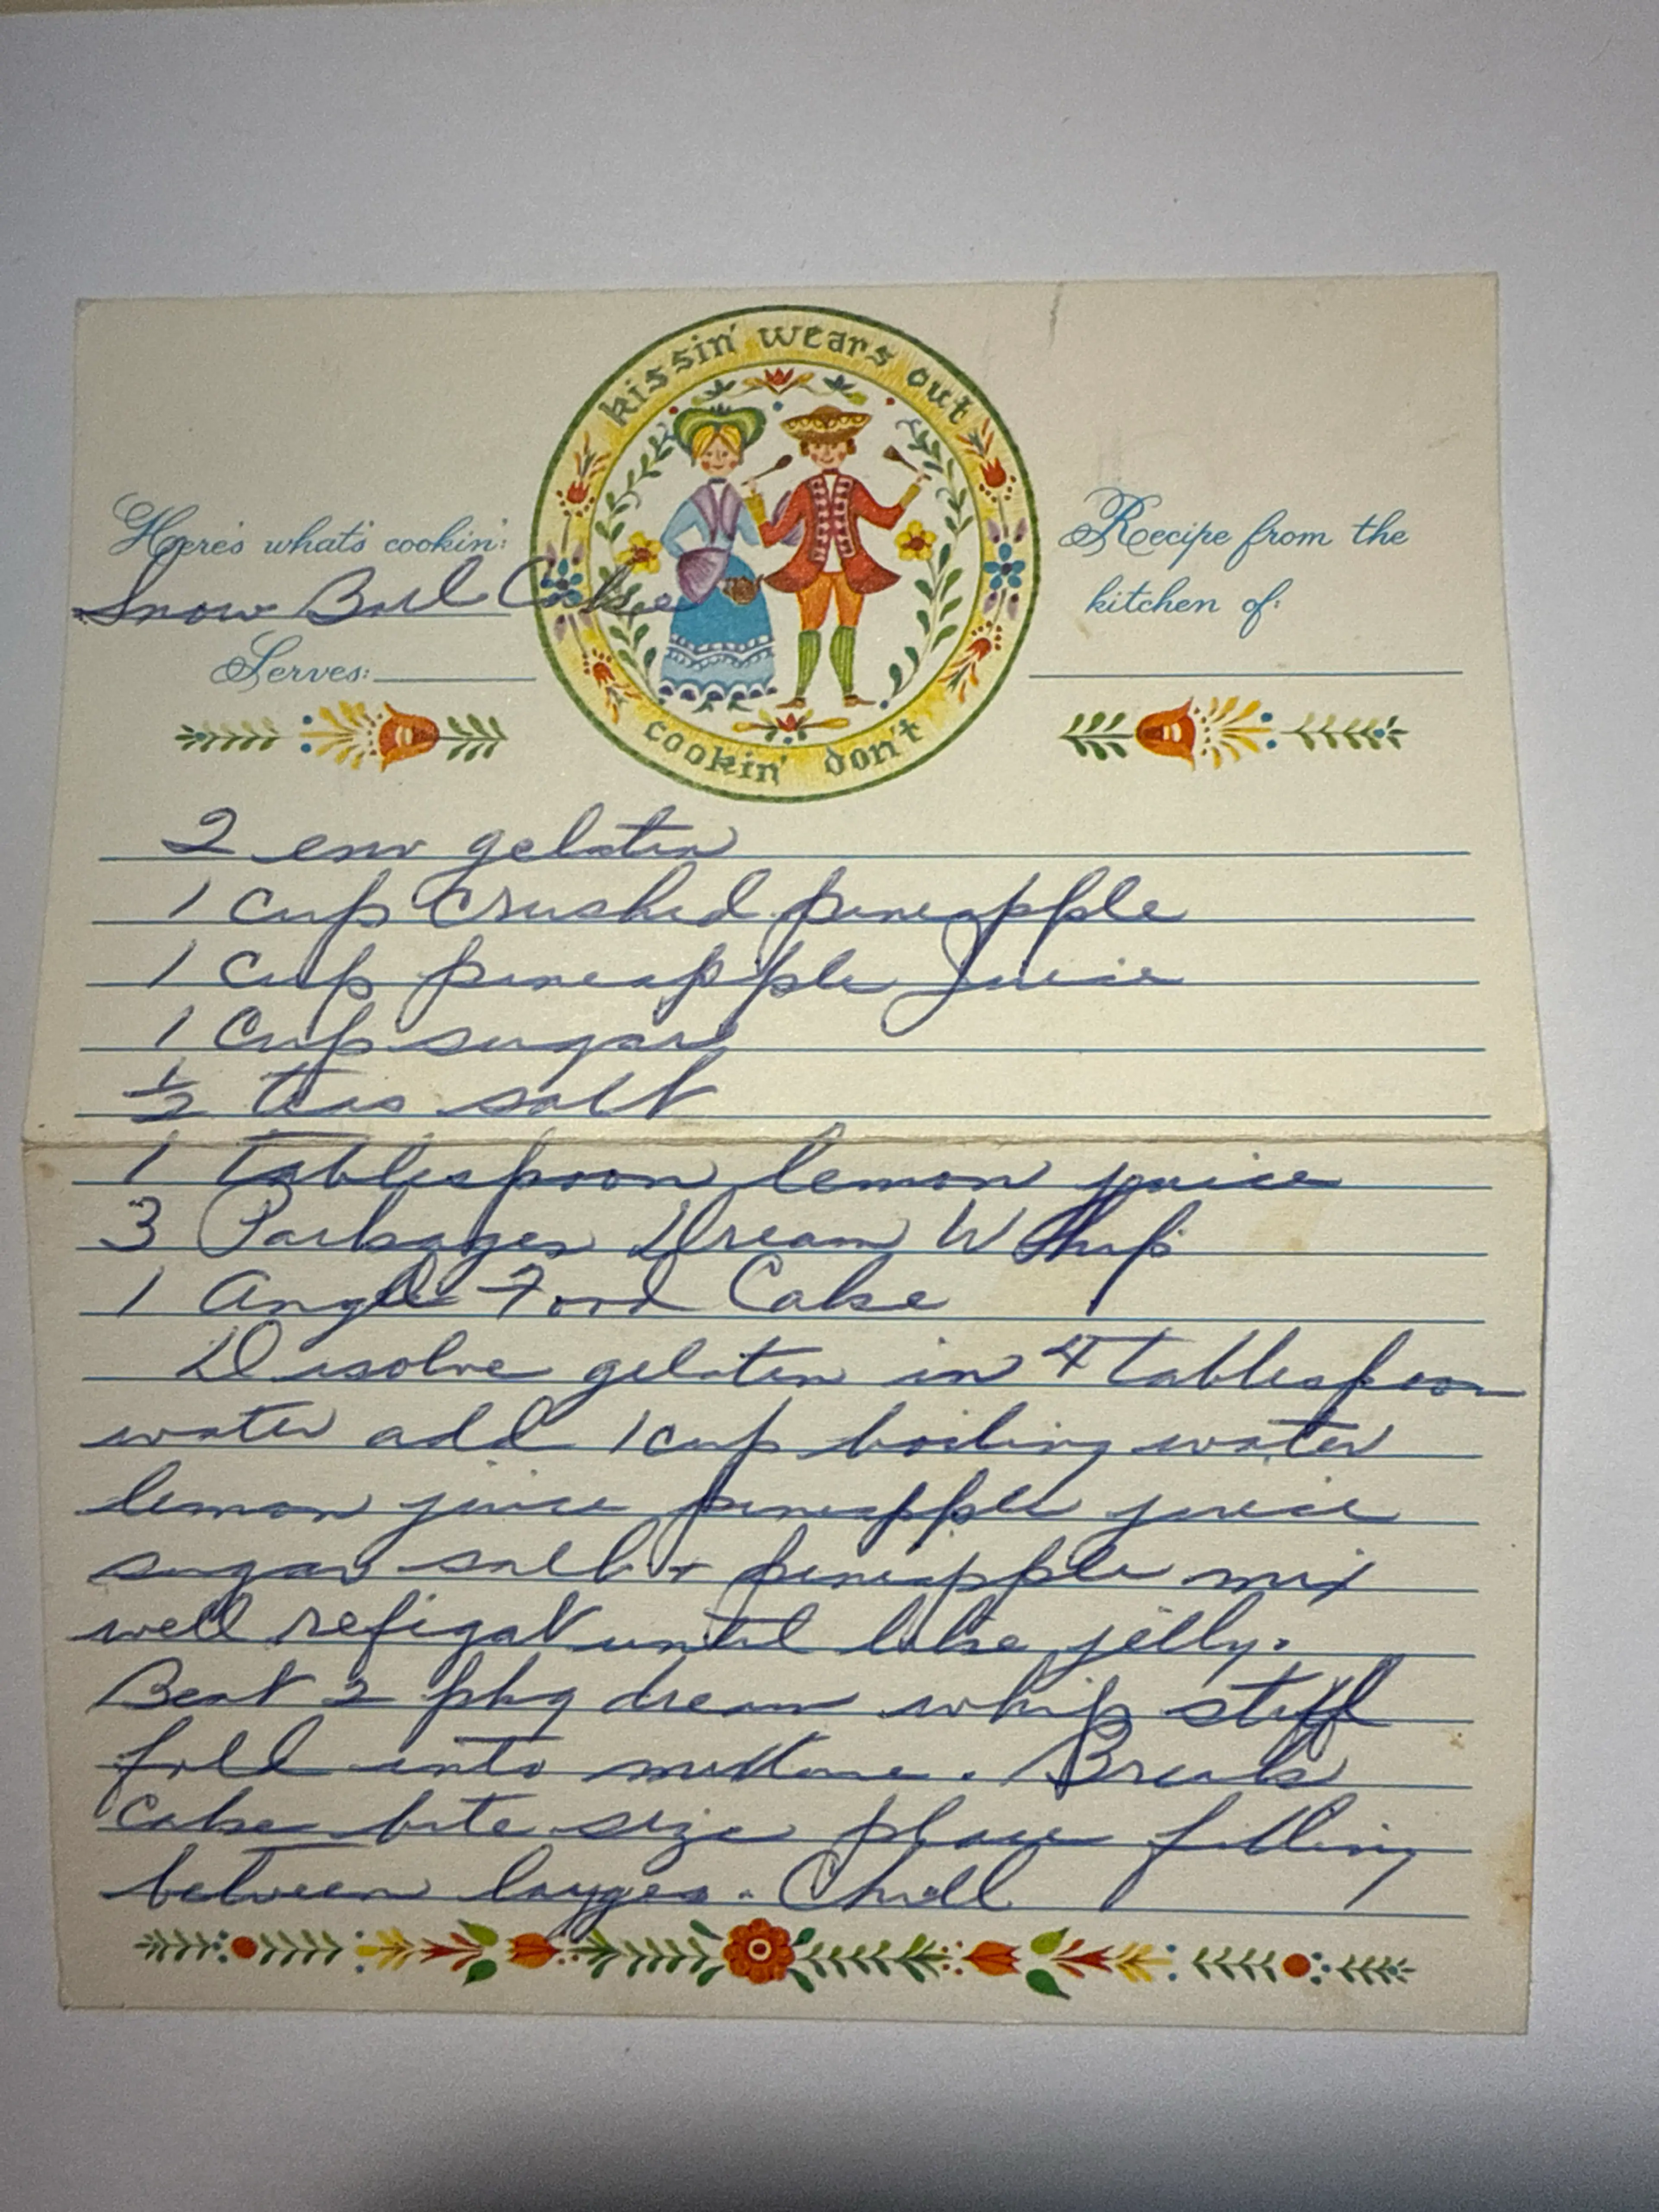 kissin' wears out
Here's what's cookin':
Snow Ball Cake
Recipe from the
kitchen of:
Serves:
cookin' don't
2 env gelatin
1 cup crushed pineapple
1 cup pineapple Juice
1 cup sugar
1/2 teas salt
1 tablespoon lemon juice
3 Packages Dream Whip
1 Angle Food Cake
Disolve gelatin in 4 tablespoon
water add 1 cup boiling water
lemon juice pineapple juice
sugar salt + pineapple mix
well refigat until like jelly.
Beat 2 pkg dream whip stiff
fold into . Break
cake bite size place filling
between laygers. Chill